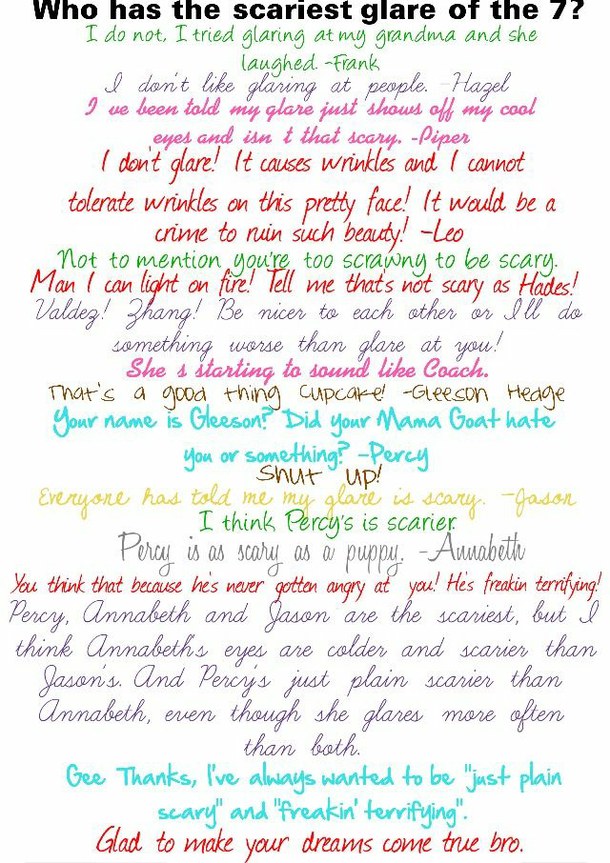 Who has the scariest glare of the 7?
I do not, I tried glaring at my grandma and she
laughed. -Frank
I don't like glaring at people. -Hazel
I ve been told my glare just shows off my cool
eyes and isn t that scary. -Piper
I don't glare! It causes wrinkles and I cannot
tolerate wrinkles on this pretty face! It would be a
crime to ruin such beauty! -Leo
Not to mention you're too scrawny to be scary.
Man I can light on fire! Tell me that's not scary as Hades!
Valdez! Zhang! Be nicer to each other or I'll do
something worse than glare at you!
She s starting to sound like Coach.
That's a good thing Cupcake! -Gleeson Hedge
Your name is Gleeson? Did your Mama Goat hate
you or something? -Percy
Shut up!
Everyone has told me my glare is scary. -Jason
I think Percy's is scarier
Percy is as scary as a puppy. -Annabeth
You think that because he's never gotten angry at you! He's freakin terrifying!
Percy, Annabeth and Jason are the scariest, but I
think Annabeth's eyes are colder and scarier than
Jason's. And Percy's just plain scarier than
Annabeth, even though she glares more often
than both.
Gee Thanks, I've always wanted to be "just plain
scary" and "freakin' terrifying".
Glad to make your dreams come true bro.